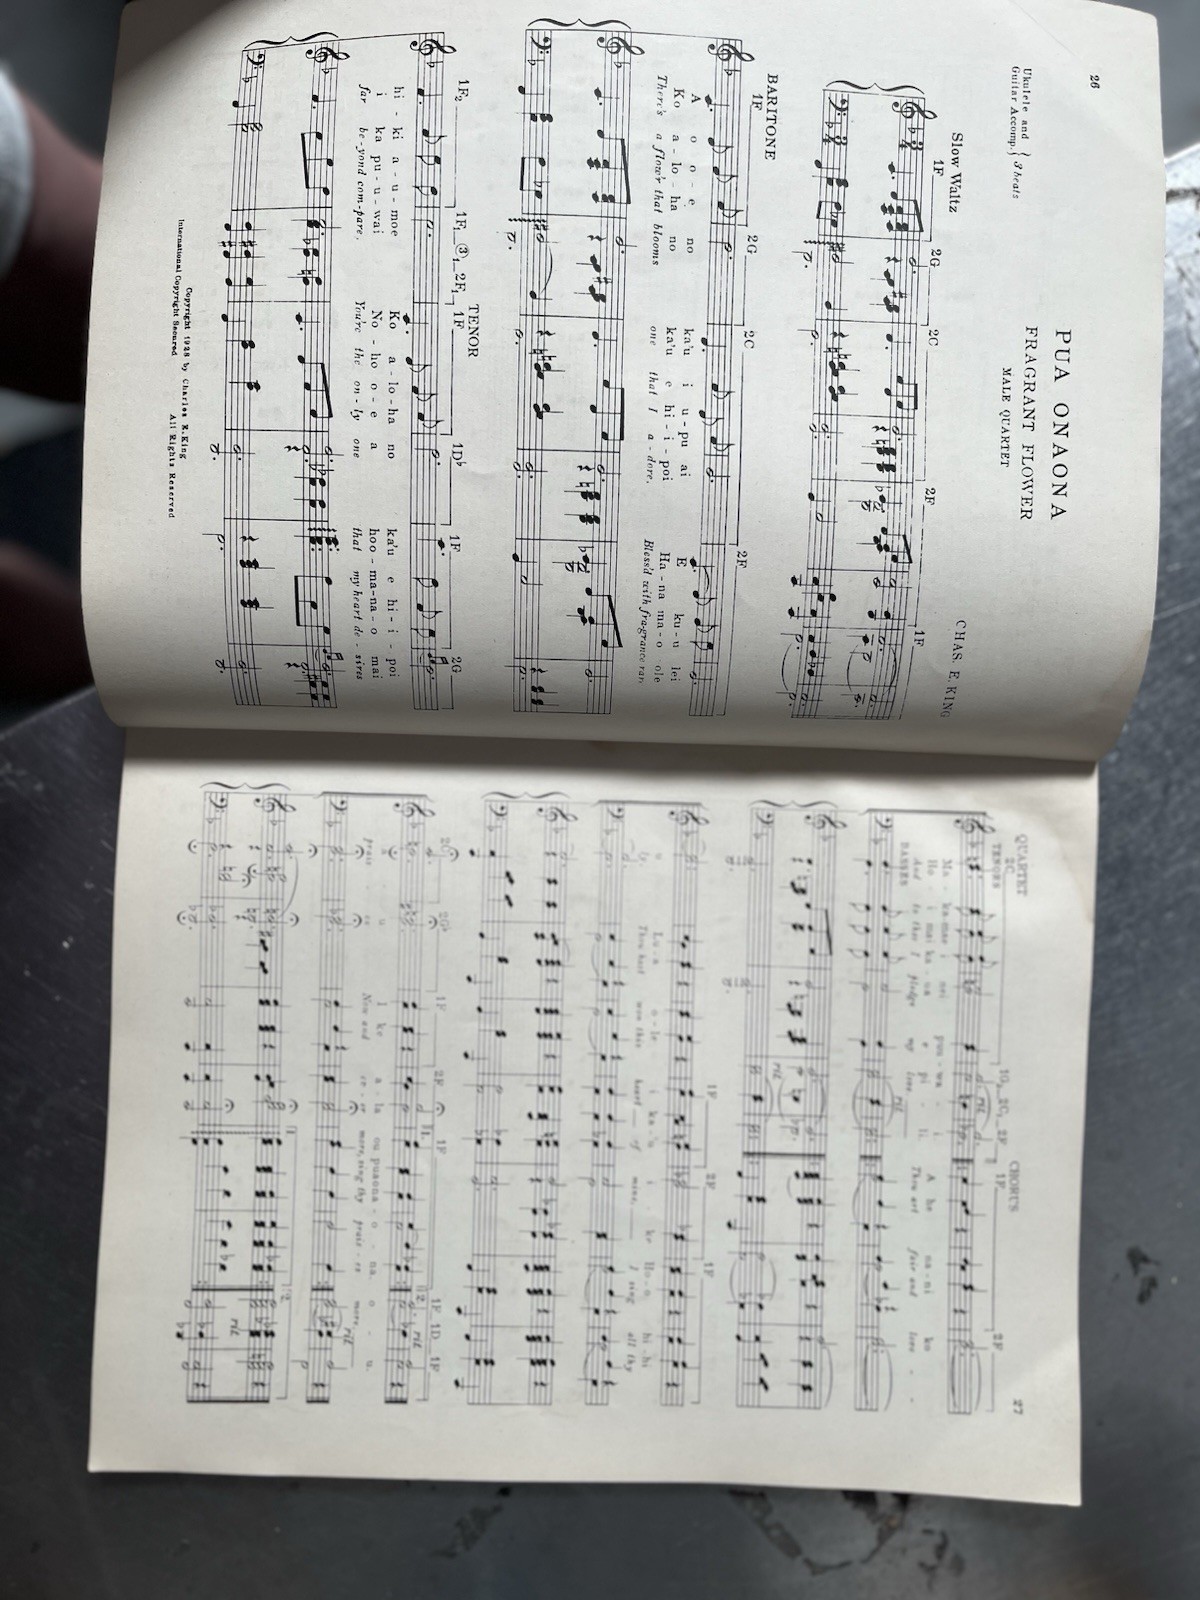 26
Ukulele and
Guitar Accomp. { 3 beats
PUA ONAONA
FRAGRANT FLOWER
MALE QUARTET
CHAS. E. KING
Slow Waltz
1F 2G 2C 2F 1F
BARITONE
1F 2G 2C 2F
A o o - e no ka'u i u - pu ai E ku - u lei
Ko a - lo - ha no ka'u e hi - i - poi Ha - na ma - o ole
There's a flow'r that blooms one that I a - dore. Bless'd with fra-grance
TENOR
1F₂ 1F₁ ③₁ 2F₁ 1F 1D♭ 1F 2G
hi - ki a - u - moe Ko a - lo - ha no ka'u e hi - i - poi
i ka pu - u - wai No - ho o - e a hoo - ma - na - o mai
far be - yond com - pare. You're the on - ly one that my heart de - sires
Copyright 1928 by Charles E. King
International Copyright Secured All Rights Reserved
27
QUARTET
2C CHORUS
TENORS 1F 2F
BASSES
rit.
And to thee I pledge my love Thou art fair and love
1F 2F 1F
Thou hast won this heart of mine, I sing all thy
1F 2F 1F 1F 1D 1F
Now and ev - er more, sing thy prais - es more.
rit.